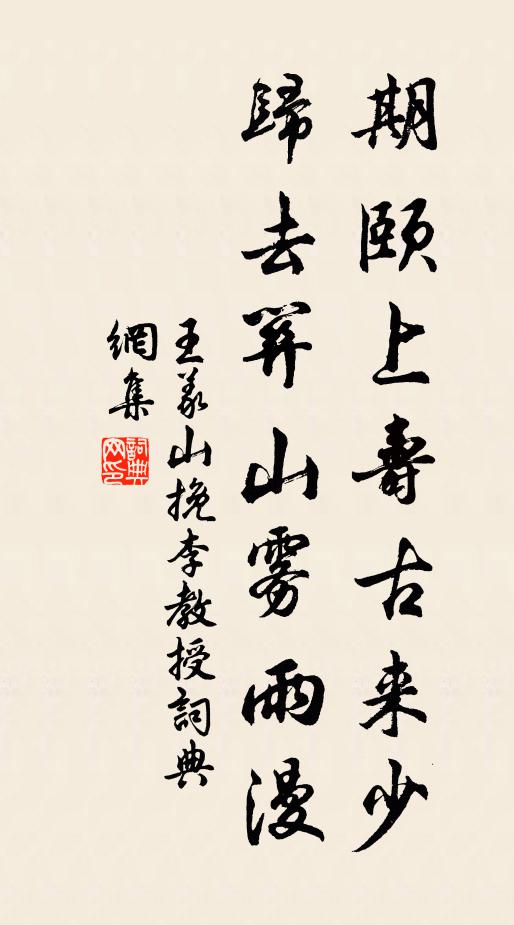 期頤上壽古来少
歸去笄山雾雨漫
王義山挽李教授詞典
網集
詞典
网印